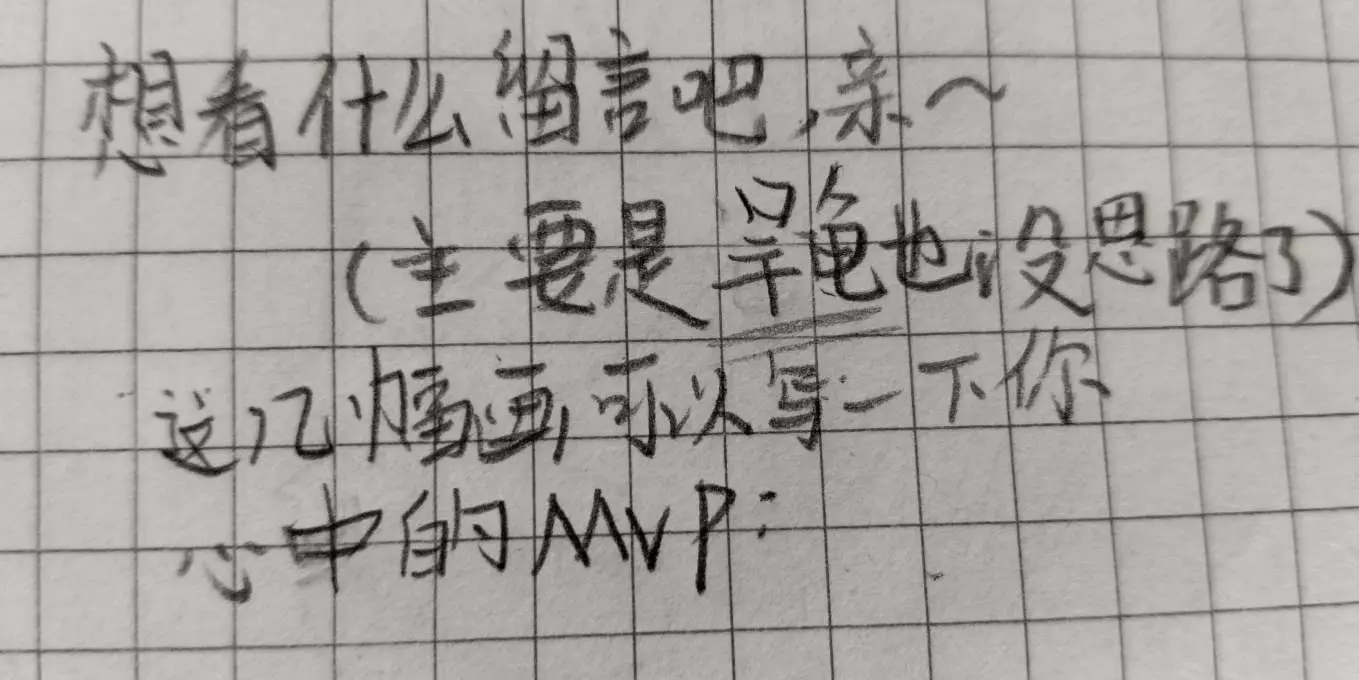 想看什么留言吧,亲~
(主要是旱龟也没思路了)
这几幅画,可以写一下你
心中的MVP: